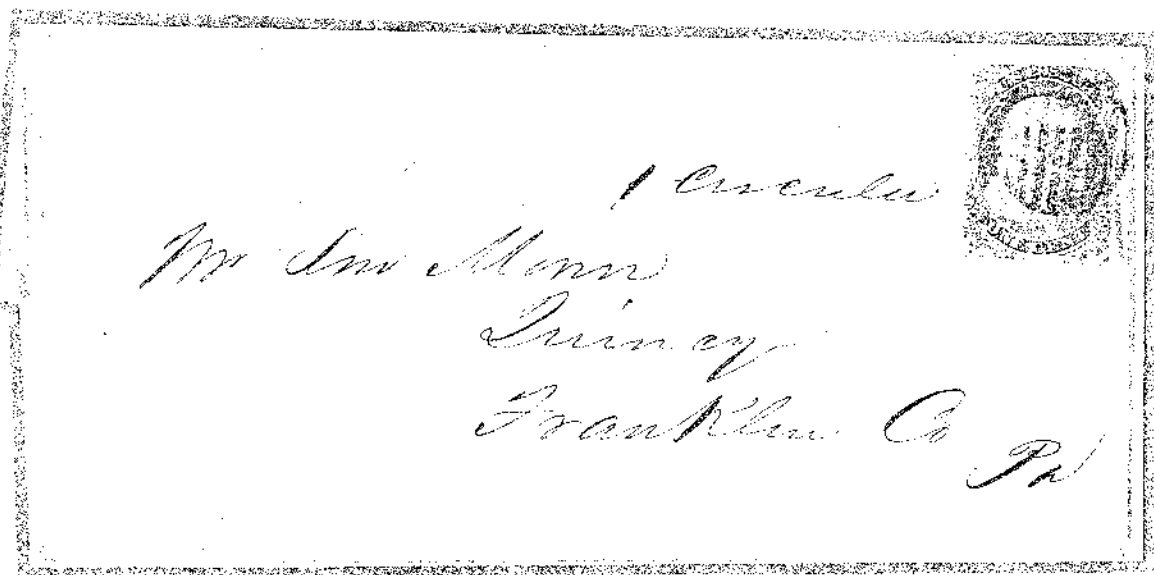 1 Circular
Mr Jno Monn
Quincy
Franklin Co
Pa